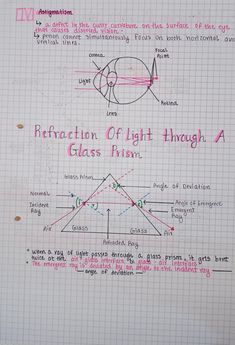 IV Astigmatism
↳ a defect in the outer curvature on the surface of the eye
that causes distorted vision.
↳ person cannot simultaneously focus on both horizontal and
vertical lines.
Cornea
Focal
Point
Lens
Retina
Refraction Of Light through A
Glass Prism
Glass Prism
Angle of Deviation
Normal
Incident
Ray
Angle of Emergence
Emergent
Ray
Air
Glass
Glass
Air
Refracted Ray
* When a ray of light passes through a glass prism, it gets bent
twice at the air-glass interface & glass-air interface
* The emergent ray is deviated by an angle to the incident ray
angle of deviation